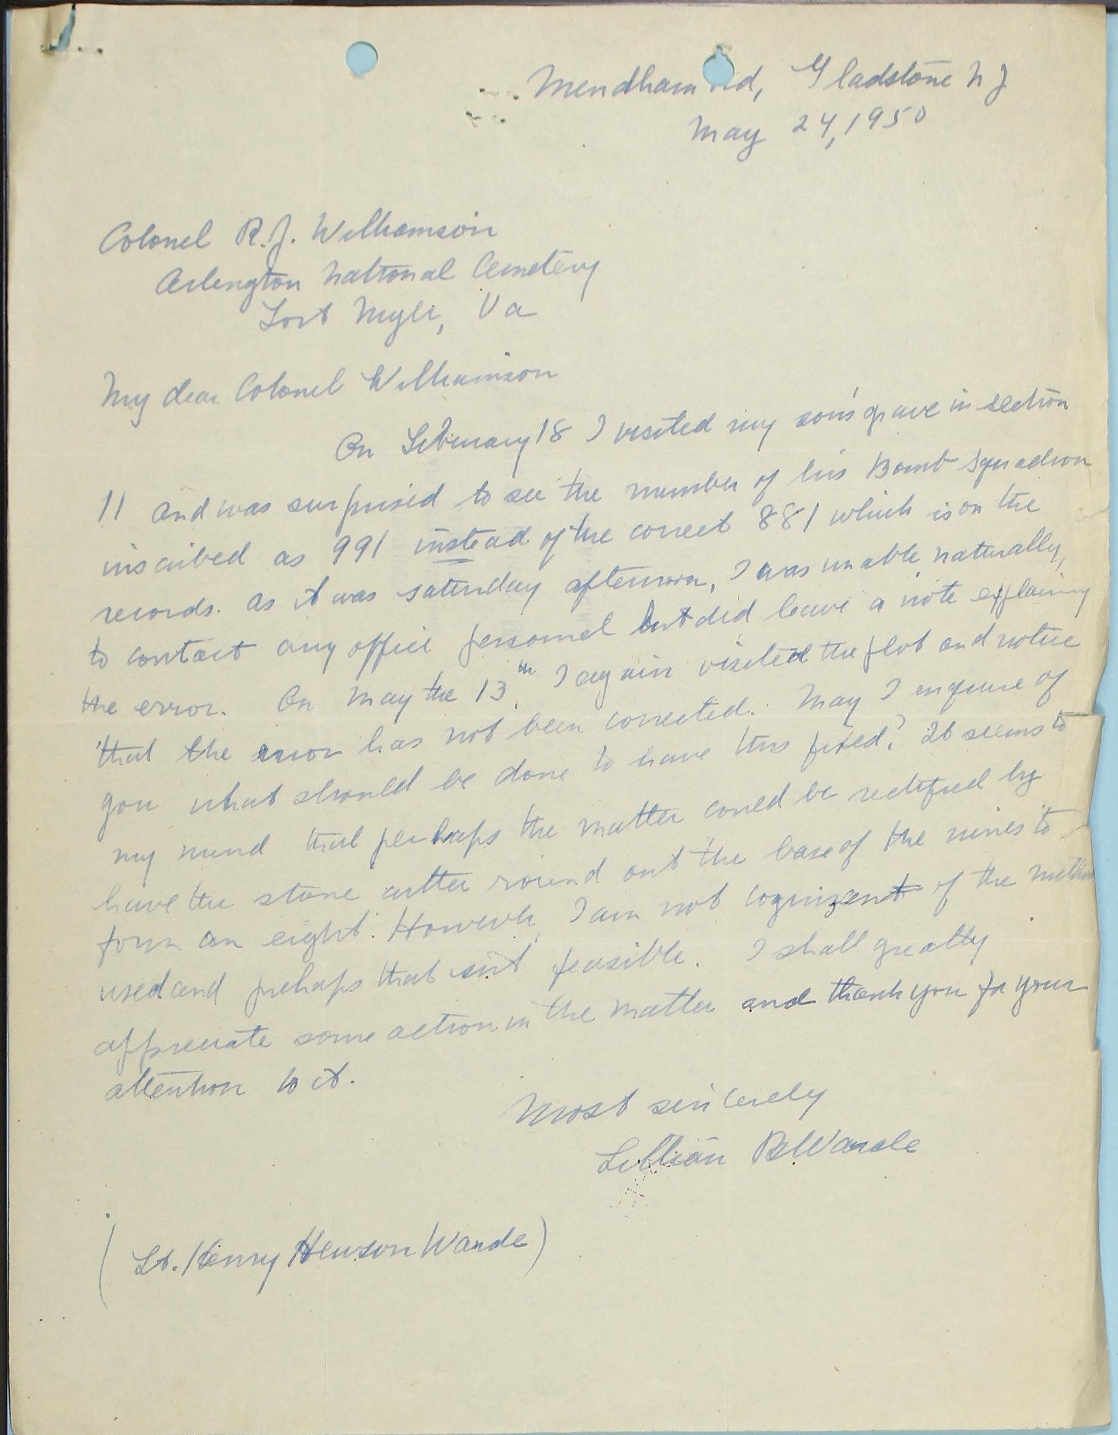 Mendham Rd, Gladstone N J
May 24, 1950
Colonel R. J. Williamson
Arlington National Cemetery
Fort Myer, Va
My dear Colonel Williamson
On February 18 I visited my son's grave in section
11 and was surprised to see the number of his Bomb Squadron
inscribed as 991 instead of the correct 881 which is on the
records. As it was Saturday afternoon, I was unable naturally,
to contact any office personnel but did leave a note explaining
the error. On May the 13th, I again visited the plot and notice
that the error has not been corrected. May I enquire of
you what should be done to have this fixed? It seems to
my mind that perhaps the matter could be rectified by
have the stone cutter round out the base of the nines to
form an eight. However, I am not cognizant of the method
used and perhaps that isn't feasible. I shall greatly
appreciate some action in the matter and thank you for your
attention to it.
Most sincerely
Lillian B. Wande
(Lt. Henry Hewson Wande)